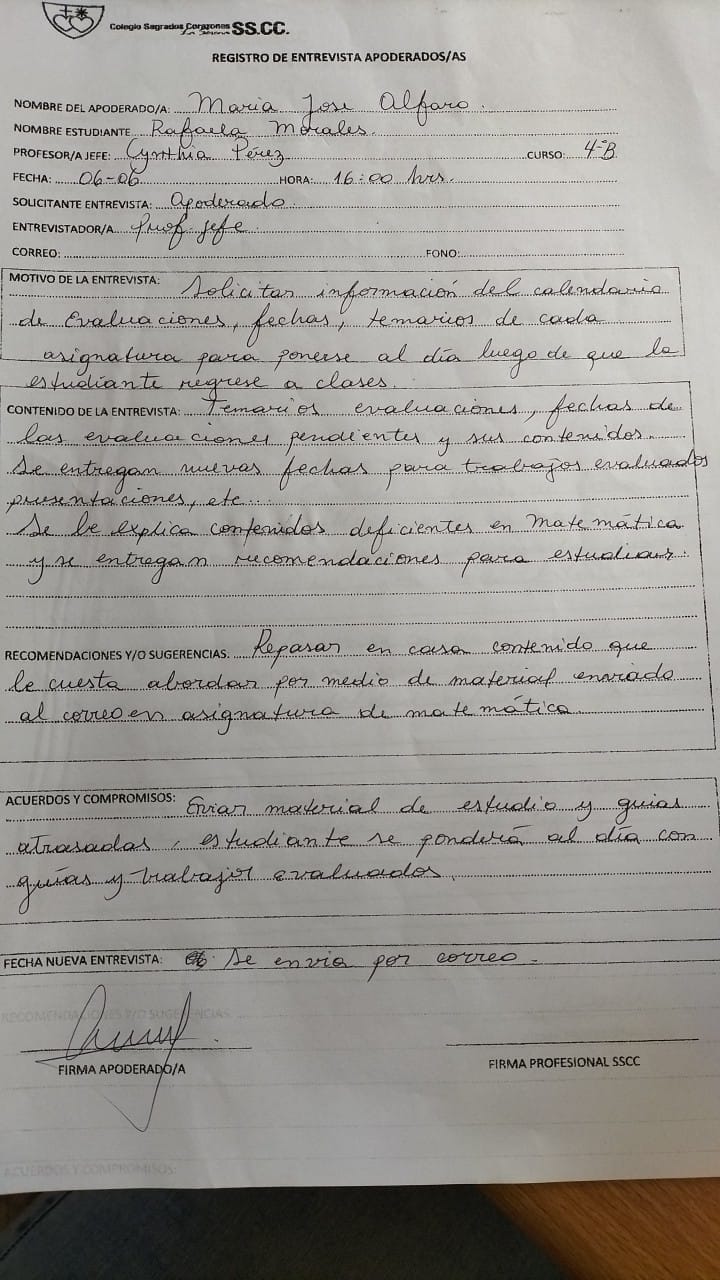 Colegio Sagrados Corazones SS.CC.
La Serena
REGISTRO DE ENTREVISTA APODERADOS/AS
NOMBRE DEL APODERADO/A: Maria Jose Alfaro.
NOMBRE ESTUDIANTE Rafaela Morales.
PROFESOR/A JEFE: Cynthia Pérez CURSO: 4-B
FECHA: 06-06 HORA: 16:00 hrs.
SOLICITANTE ENTREVISTA: Apoderado
ENTREVISTADOR/A Prof. Jefe
CORREO: FONO:
MOTIVO DE LA ENTREVISTA: Solicitar información del calendario
de evaluaciones, fechas, temarios de cada
asignatura para ponerse al día luego de que la
estudiante regrese a clases.
CONTENIDO DE LA ENTREVISTA: Temarios evaluaciones, fechas de
las evaluaciones pendientes y sus contenidos.
Se entregan nuevas fechas para trabajos evaluados
presentaciones, etc...
Se le explica contenidos deficientes en Matemática
y se entregan recomendaciones para estudiar.
RECOMENDACIONES Y/O SUGERENCIAS: Repasar en casa contenido que
le cuesta abordar por medio de material enviado
al correo en asignatura de matemática.
ACUERDOS Y COMPROMISOS: Enviar material de estudio y guías
atrasadas, estudiante se ponderá al día con
guías y trabajos evaluados.
FECHA NUEVA ENTREVISTA: Se envia por correo.
RECOMENDACIONES Y/O SUGERENCIAS:
FIRMA APODERADO/A FIRMA PROFESIONAL SSCC
ACUERDOS Y COMPROMISOS: